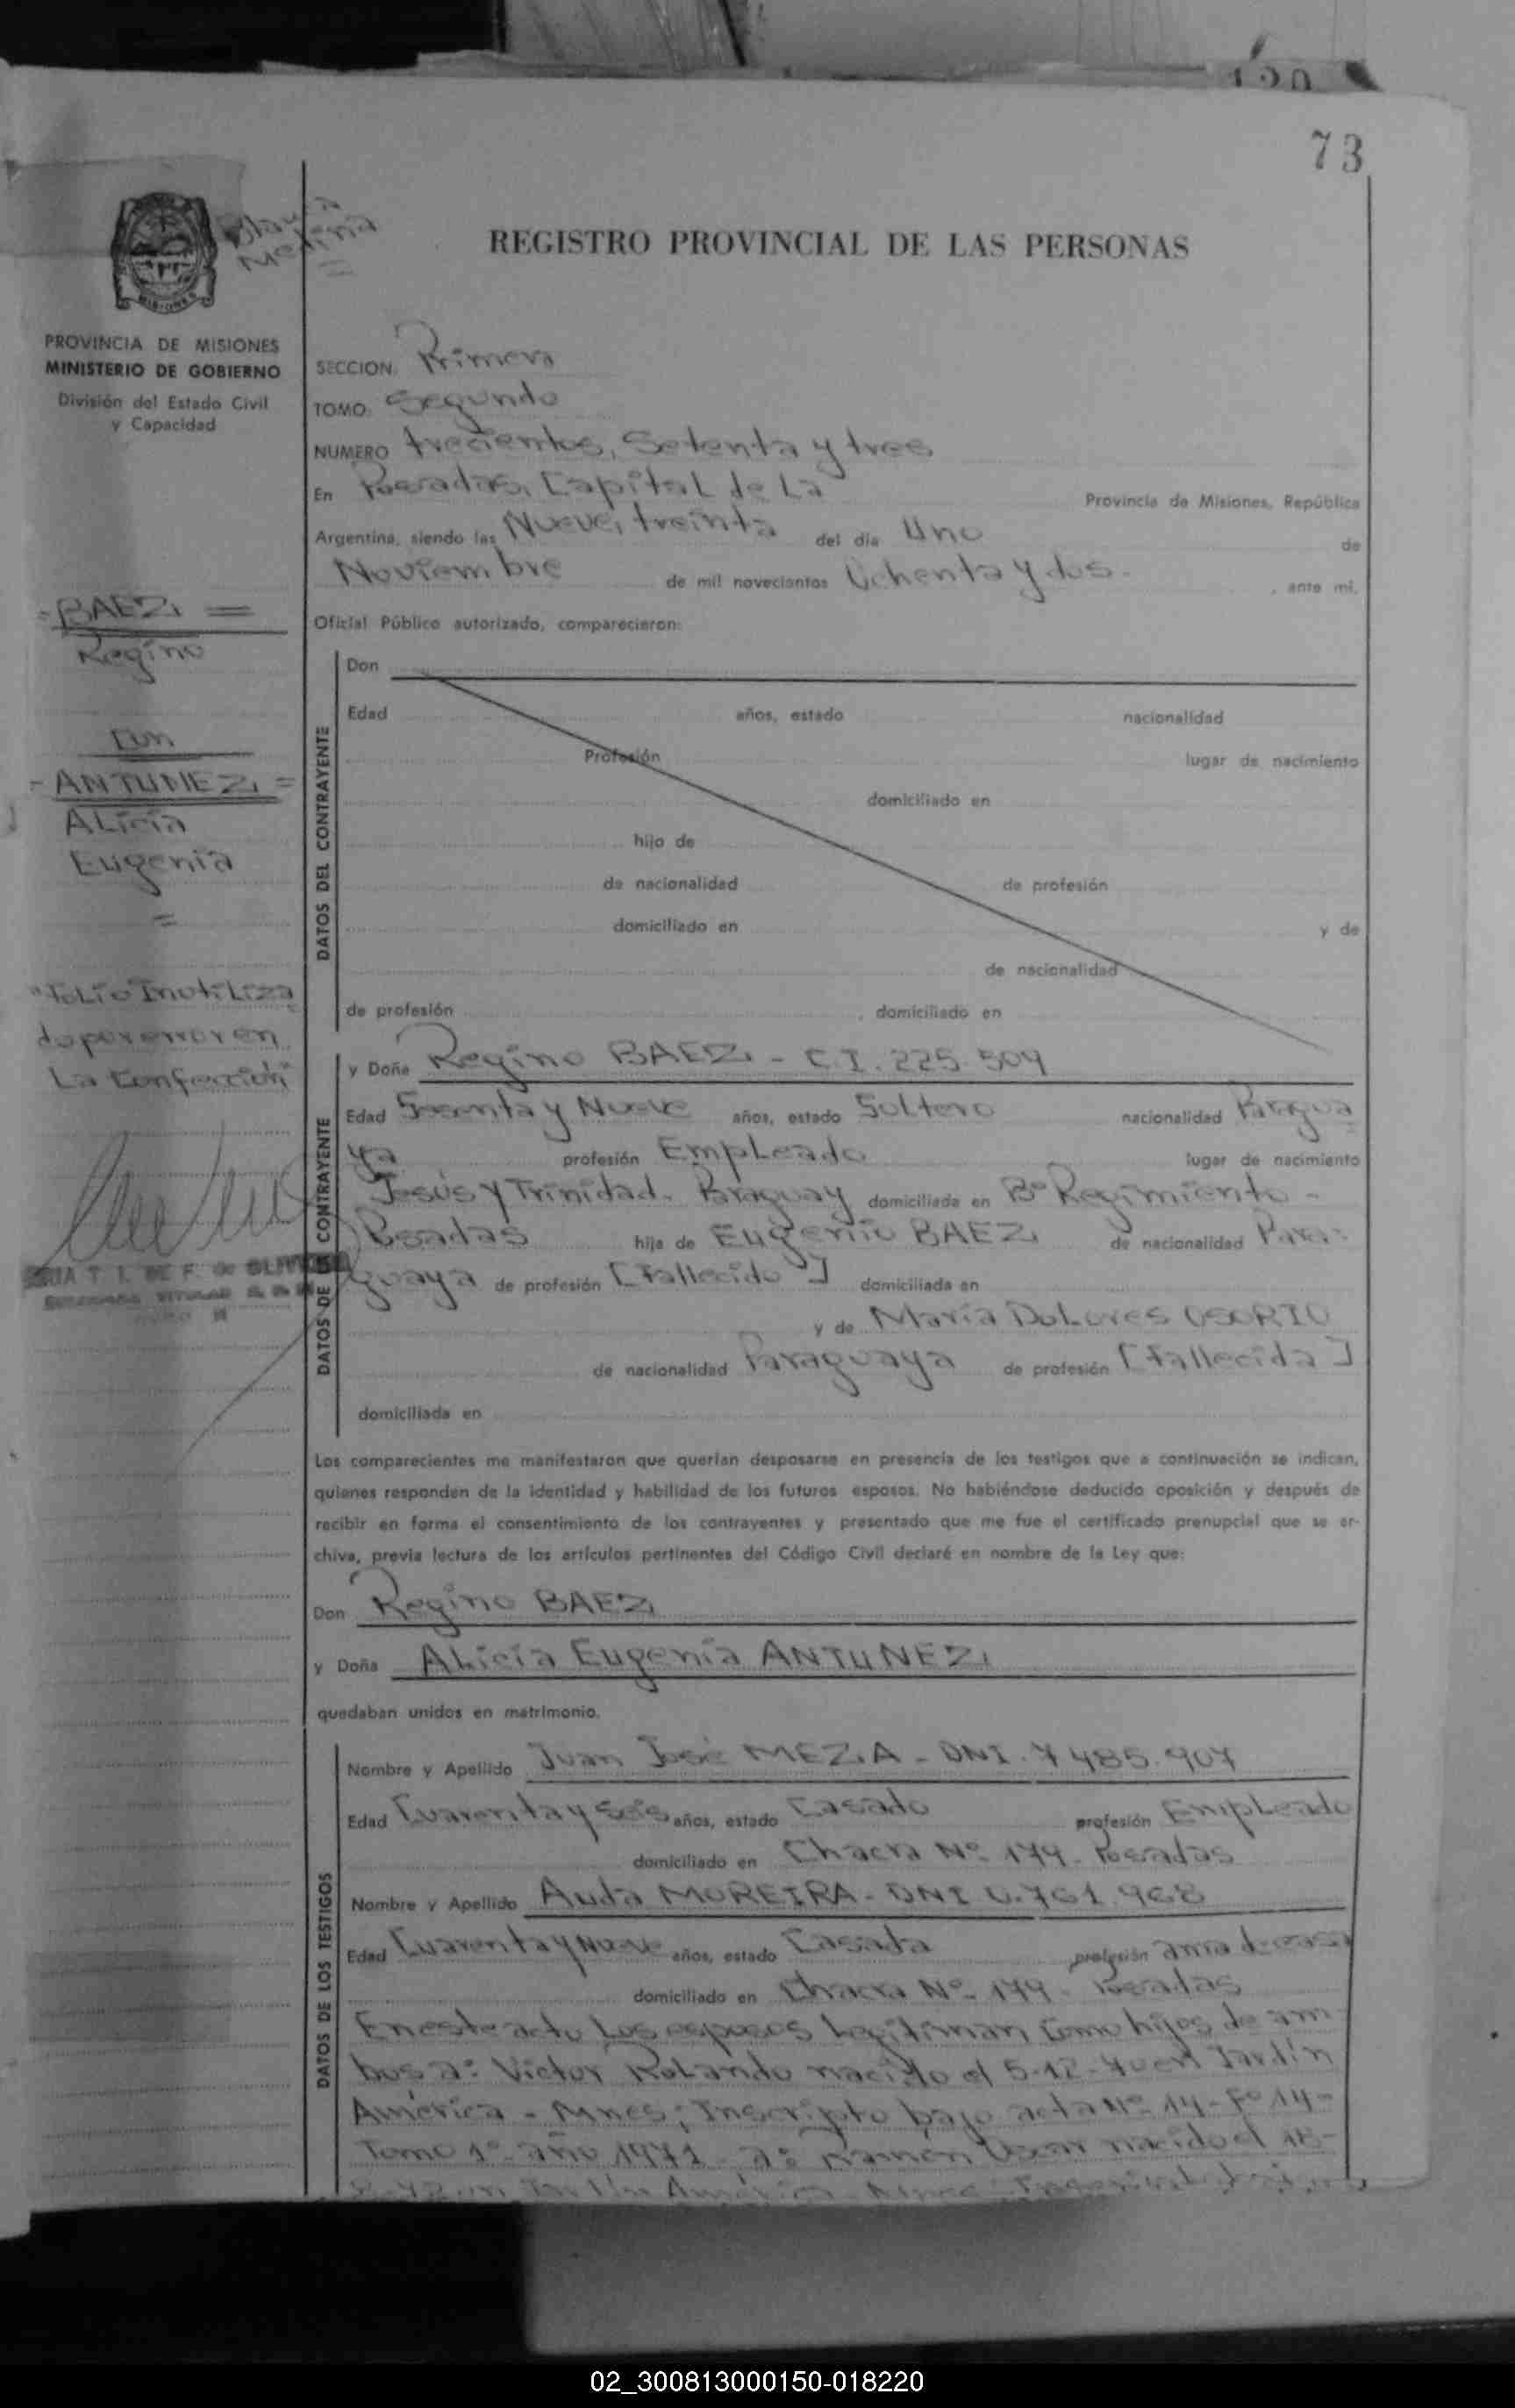 73
REGISTRO PROVINCIAL DE LAS PERSONAS
PROVINCIA DE MISIONES
MINISTERIO DE GOBIERNO
División del Estado Civil
y Capacidad
SECCION Primera
TOMO Segundo
NUMERO trecientos, Setenta y tres
En Posadas, Capital de La Provincia de Misiones, República
Argentina, siendo las Nueve, treinta del día Uno de
Noviembre de mil novecientos Ochenta y dos - , ante mi,
Oficial Público autorizado, comparecieron:
- BAEZ =
Regino
Con
- ANTUNEZ =
ALicia
Eugenia
=
"FoLio InutiLiza
do por error en
La Confección"
DATOS DEL CONTRAYENTE
Don
Edad años, estado nacionalidad
Profesión lugar de nacimiento
domiciliado en
hijo de
de nacionalidad de profesión
domiciliado en y de
de nacionalidad
de profesión , domiciliado en
DATOS DE LA CONTRAYENTE
y Doña Regino BAEZ - C.I. 225.509
Edad Sesenta y Nueve años, estado Soltero nacionalidad Paragua
ya profesión EmpLeado lugar de nacimiento
Jesús y Trinidad. Paraguay domiciliada en B° Regimiento -
Posadas hija de Eugenio BAEZ de nacionalidad Para-
guaya de profesión [Fallecido] domiciliada en
y de María DoLores OSORIO
de nacionalidad Paraguaya de profesión [Fallecida]
domiciliada en
Los comparecientes me manifestaron que querían desposarse en presencia de los testigos que a continuación se indican,
quienes responden de la identidad y habilidad de los futuros esposos. No habiéndose deducido oposición y después de
recibir en forma el consentimiento de los contrayentes y presentado que me fue el certificado prenupcial que se ar-
chiva, previa lectura de los artículos pertinentes del Código Civil declaré en nombre de la Ley que:
Don Regino BAEZ
y Doña ALicia Eugenia ANTUNEZ
quedaban unidos en matrimonio.
DATOS DE LOS TESTIGOS
Nombre y Apellido Juan José MEZA - DNI. 7.485.907
Edad Cuarenta y Seis años, estado Casado profesión EmpLeado
domiciliado en Chacra N° 179 - Posadas
Nombre y Apellido Auda MOREIRA - DNI
Edad Cuarenta y Nueve años, estado Casada profesión ama de casa
domiciliado en Chacra N° 179 - Posadas
En este acto Los esposos Legitiman como hijos de am
bos a: Victor RoLando nacido el 5-12-70 en Jardín
América - Mnes; Inscripto bajo acta N° 14 - F° 14 -
Tomo 1° - año 1971 - a: Ramón Oscar nacido el 18-
02_300813000150-018220